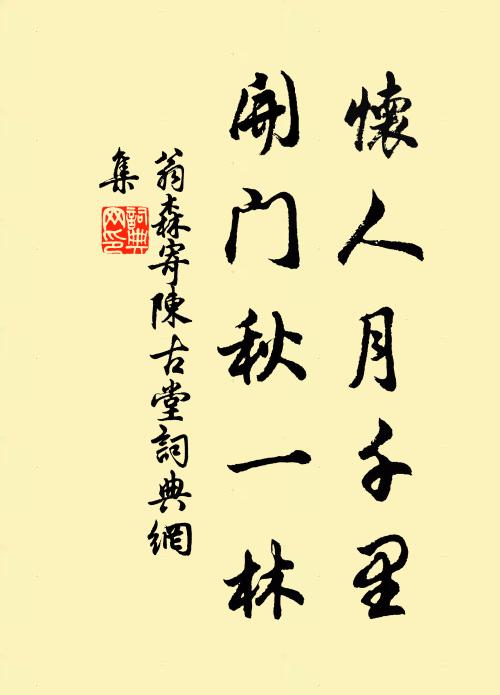 懷人月千里
開门秋一林
翁森寄陳古堂詞典網
集
詞典
网印